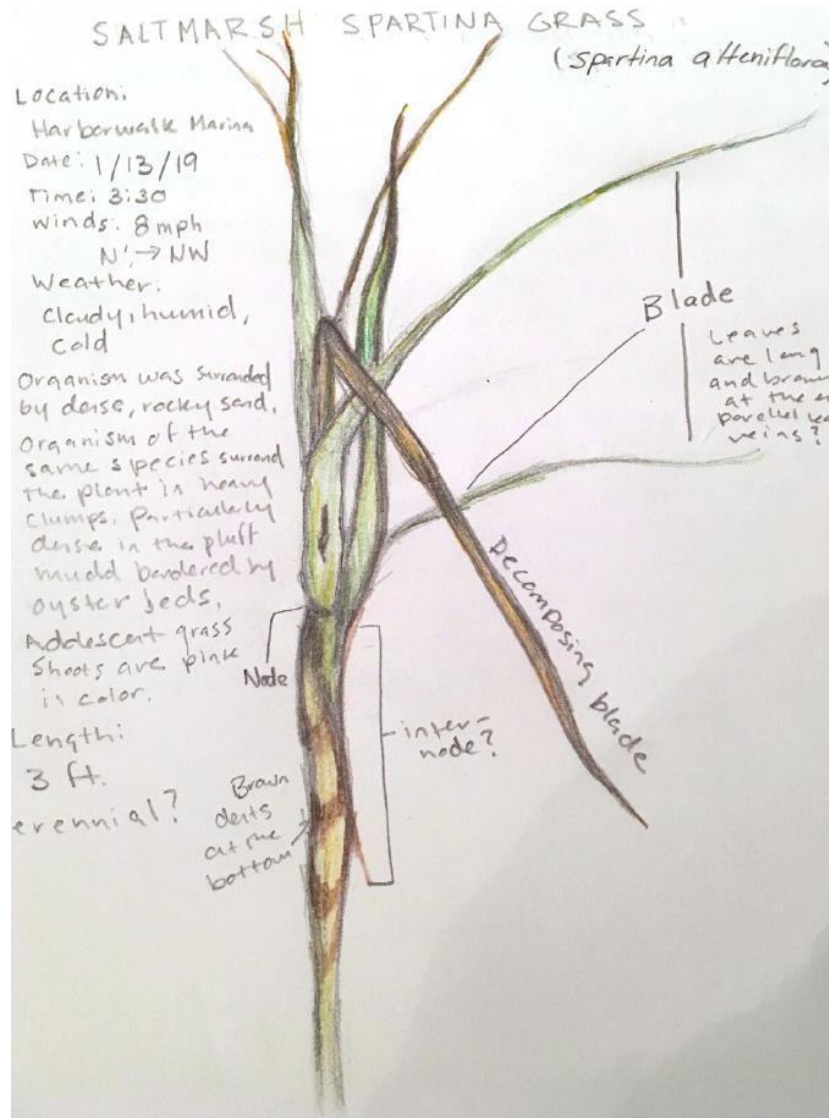 SALTMARSH SPARTINA GRASS
(spartina alteniflora)
Location:
Harborwalk Marina
Date: 1/13/19
Time: 3:30
Winds: 8 mph
N' → NW
Weather:
Cloudy, humid,
cold
Organism was surrounded
by dense, rocky sand.
Organism of the
same species surround
the plant in heavy
clumps. Particularly
dense in the pluff
mudd bordered by
oyster beds.
Addlescent grass
shoots are pink
in color.
Length:
3 ft.
erennial?
Blade
Leaves
are long
and brown
at the en
parellel lea
veins?
Decomposing blade
Node
inter-
node?
Brown
dents
at the
bottom